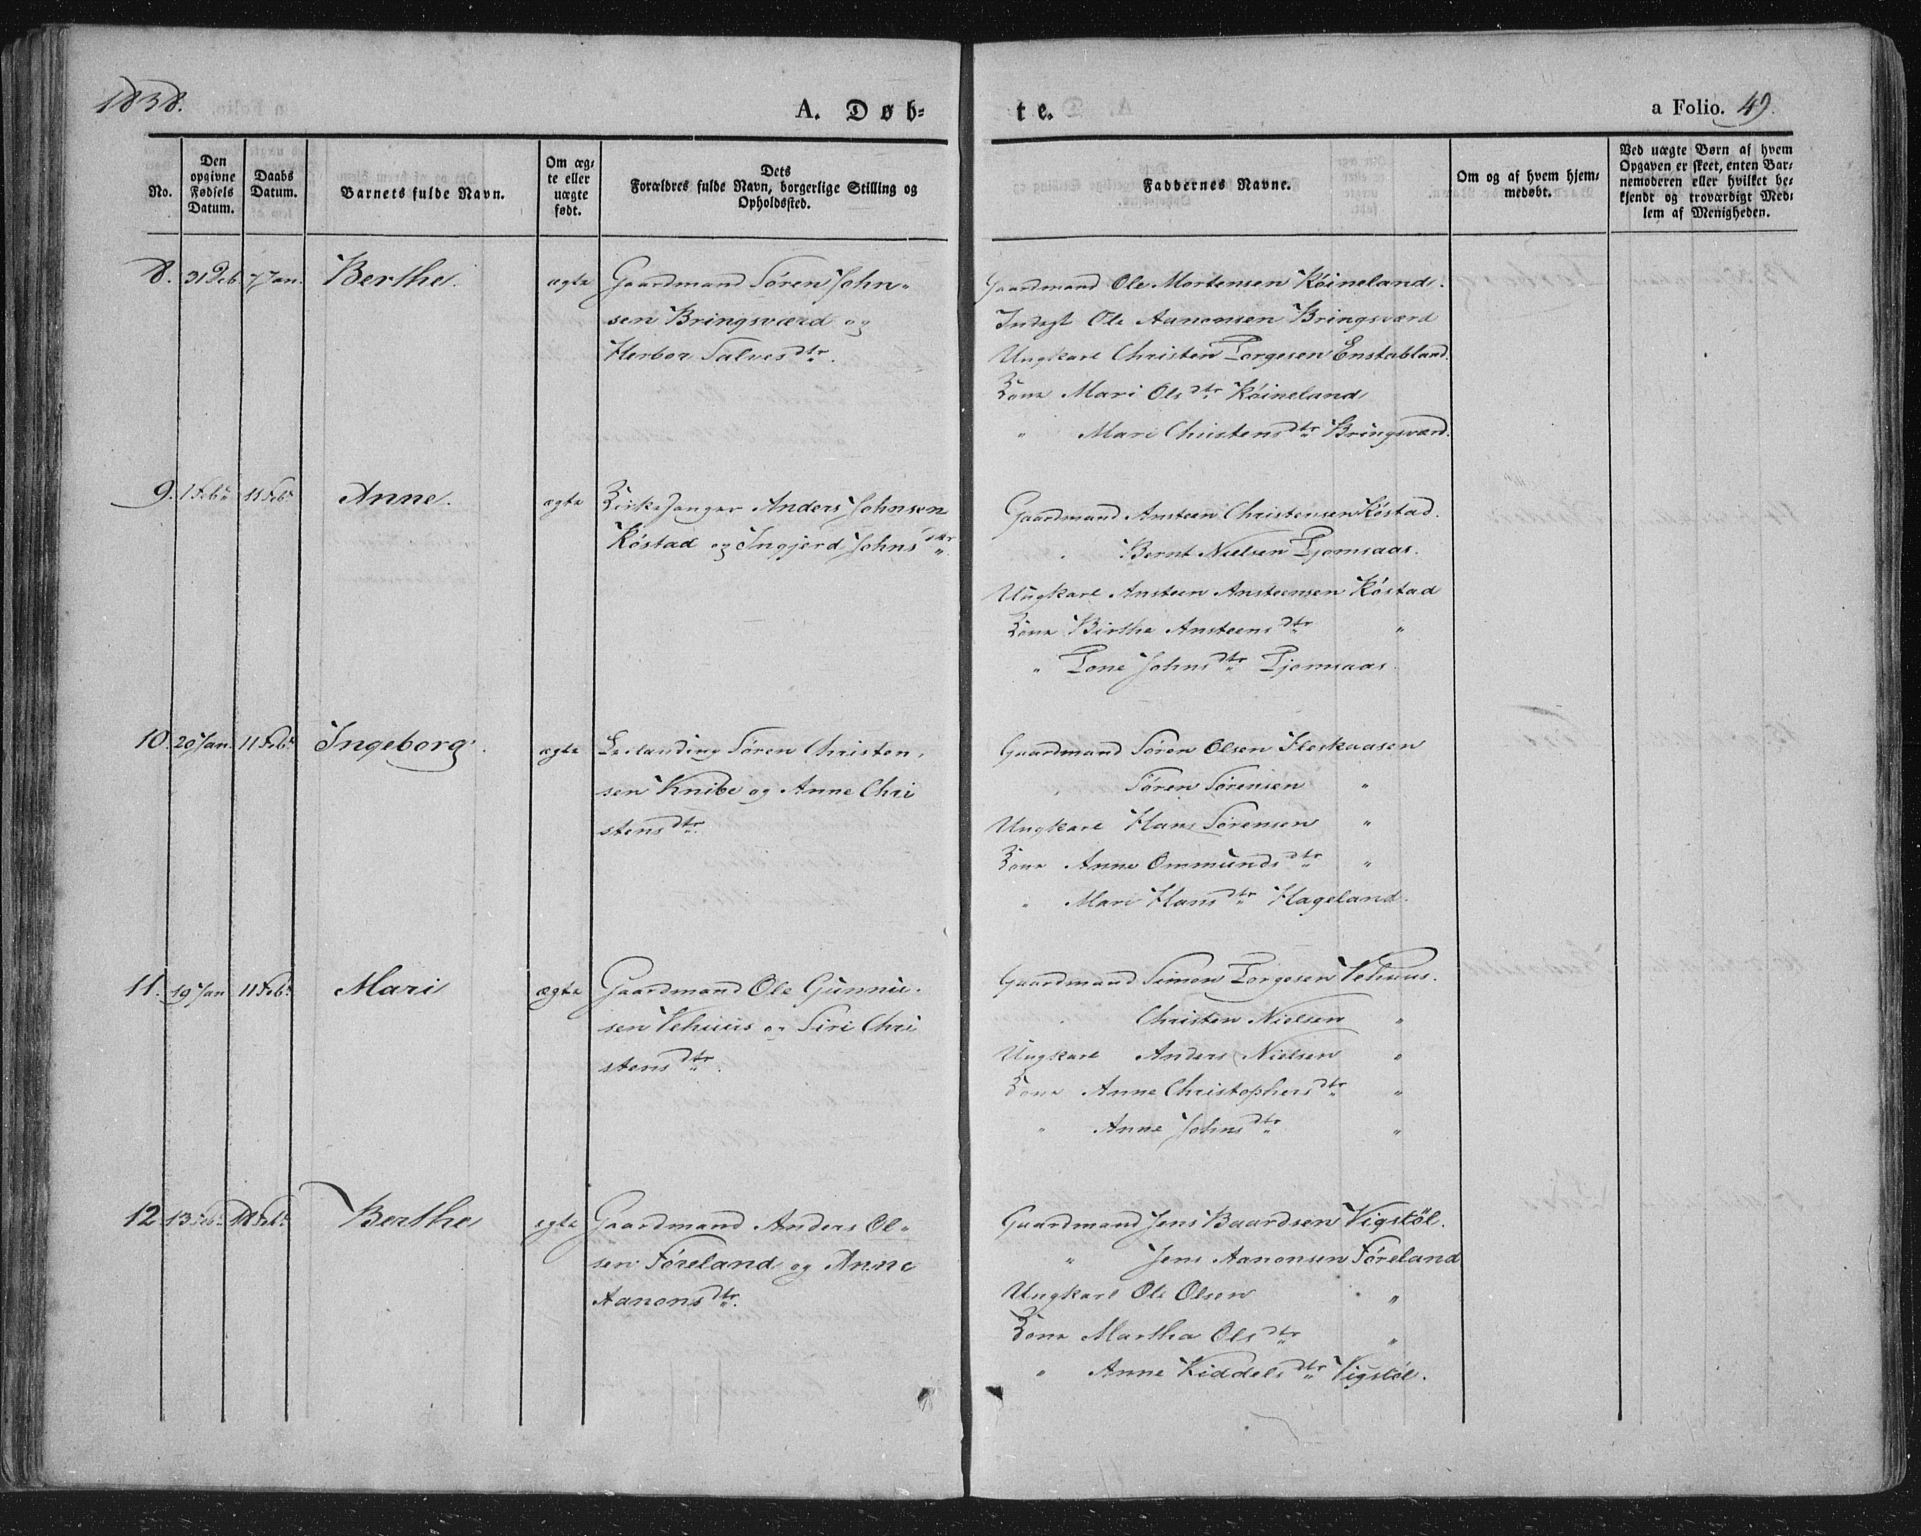 1838.
A. Døb-
te.
a Folio. 49.
No.
Den opgivne Fødsels Datum.
Daabs Datum.
Barnets fulde Navn.
Om ægte eller uægte født.
Dets Forældres fulde Navn, borgerlige Stilling og Opholdssted.
Faddernes Navne.
Om og af hvem hjemmedøbt.
Ved uægte Børn af hvem Opgaven er skeet, enten Barnemoderen eller hvilket bekjendt og troværdigt Medlem af Menigheden.
8. 31 Deb 7 Jan. Berthe. ægte Gaardmand Søren John„
sen Bringsværd og
Herbor Salvesdtr.
Gaardmand Ole Mortensen Køineland.
Inds Ole Aanonsen Bringsværd
Ungkarl Christen Torgesen Enstabland.
Kone Mari Olsdtr Køineland
„ Mari Christensdtr Bringsværd.
9. 1 Febr 11 Febr Anne. ægte Kirkesanger Anders Johnsen
Køstad og Ingjerd Johnsdtr
Gaardmand Ansteen Christensen Køstad.
„ Bernt Nielsen Tjomsaas.
Ungkarl Ansteen Ansteensen Køstad
Kone Birthe Ansteensdtr „
„ Tone Johnsdtr Tjomsaas.
10. 20 Jan. 11 Febr Ingeborg. ægte Søren Christen„
sen Knibe og Anne Chri
stensdtr.
Gaardmand Søren Olsen Heskaasen
„ Søren Sørensen „
Ungkarl Hans Sørensen „
Kone Anne Ommundsdtr „
„ Mari Hansdtr Hageland.
11. 19 Jan 11 Febr Mari ægte Gaardmand Ole Gunnu-
sen Vehuus og Siri Chri
stensdtr.
Gaardmand Simon Torgesen Vehuus.
„ Christen Nielsen „
Ungkarl Anders Nielsen „
Kone Anne Christophersdtr „
„ Anne Johnsdtr „
12 13 Febr 18 Febr Berthe ægte Gaardmand Anders Ol„
sen Føreland og Anne
Aanonsdtr.
Gaardmand Jens Baardsen Vigstøl.
„ Jens Aanonsen Føreland
Ungkarl Ole Olsen „
Kone Martha Olsdtr „
„ Anne Kiddelsdtr Vigstøl.